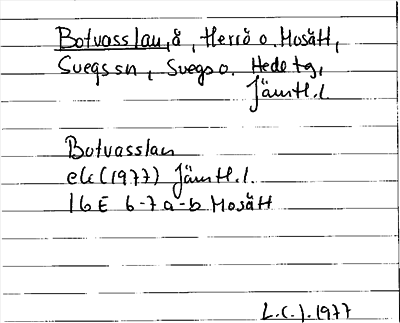 Botvasslan, å, Herrö o. Mosätt,
Svegs sn, Svegs o. Hede tg,
Jämtl.l.
Botvasslan
ek (1977) Jämtl.l.
16E 6-7 a-b Mosätt
L.C.J. 1977